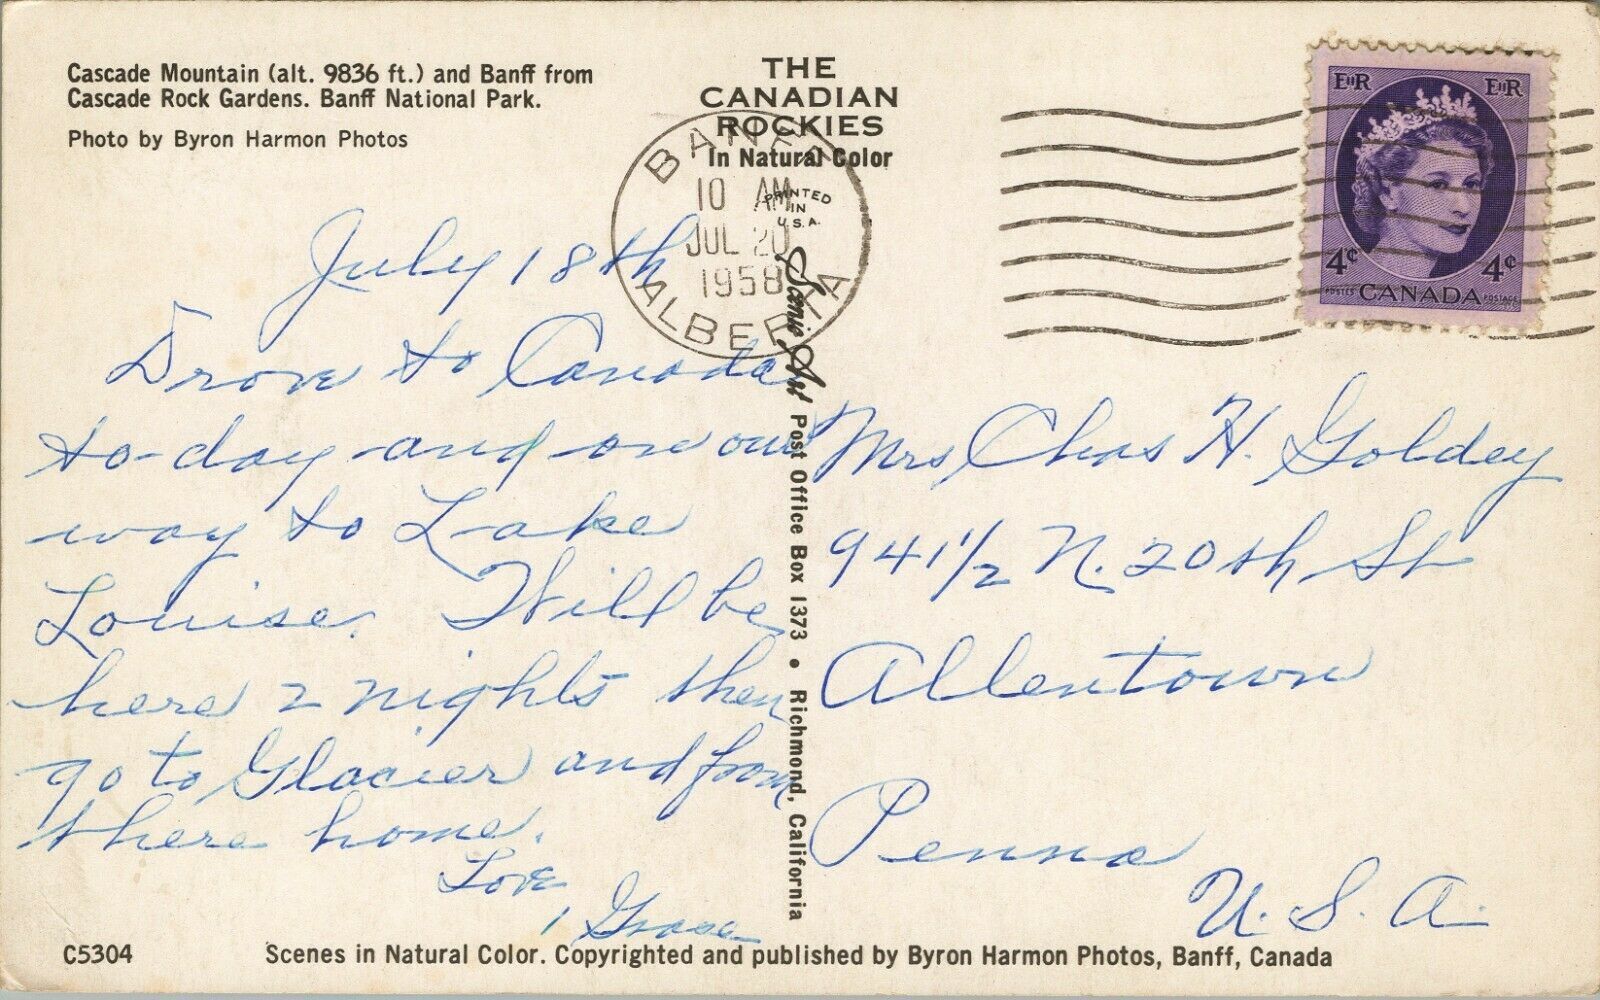 Cascade Mountain (alt. 9836 ft.) and Banff from
Cascade Rock Gardens. Banff National Park.
Photo by Byron Harmon Photos
THE
CANADIAN
ROCKIES
In Natural Color
PRINTED
IN
U.S.A.
BANFF
10 AM
JUL 20
1958
ALBERTA
EIIR EIIR
4¢ 4¢
POSTES CANADA POSTAGE
July 18th
Drove to Canada
to-day and on our
way to Lake
Louise. Will be
here 2 nights then
go to Glacier and from
there home.
Love,
Grace
Scenic Art Post Office Box 1373 • Richmond, California
Mrs Chas H. Goldey
941 1/2 N. 20th St
Allentown
Penna
U.S.A.
C5304
Scenes in Natural Color. Copyrighted and published by Byron Harmon Photos, Banff, Canada